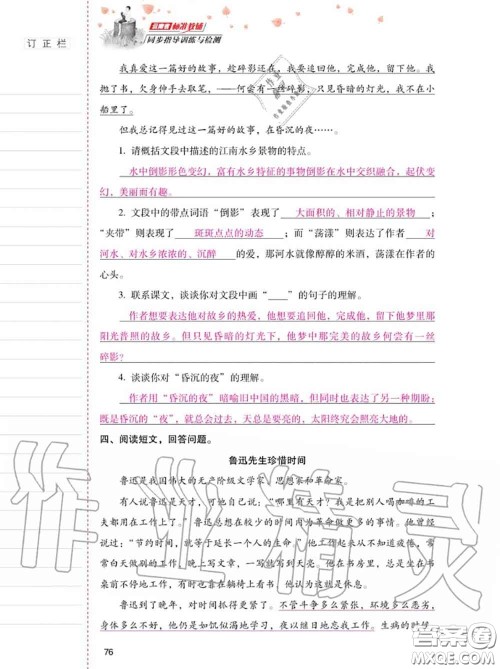 订 正 栏
云南省标准教辅
同步指导训练与检测
我真爱这一篇好的故事,趁碎影还在,我要追回他,完成他,留下他。我
抛了书,欠身伸手去取笔,——何尝有一丝碎影,只见昏暗的灯光,我不在小
船里了。
但我总记得见过这一篇好的故事,在昏沉的夜……。
1. 请概括文段中描述的江南水乡景物的特点。
水中倒影形色变幻,富有水乡特征的事物倒影在水中交织融合,起伏变
幻,美丽而有趣。
2. 文段中的带点词语“倒影”表现了 大面积的、相对静止的景物 ;
“夹带”则表现了 斑斑点点的动态 ;而“荡漾”则表达了作者 对
河水、对水乡浓浓的、沉醉 的爱,那河水就像醇醇的米酒,荡漾在作者的
心头。
3. 联系课文,谈谈你对文段中画“____”的句子的理解。
作者想要表达他对故乡的热爱,他想要追回他,完成他,留下他梦里那
阳光普照的故乡。但只见昏暗的灯光下,他梦中那完美的故乡何尝有一丝
碎影?
4. 谈谈你对“昏沉的夜”的理解。
作者用“昏沉的夜”暗喻旧中国的黑暗,但同时也表达了另一种期盼:
既是昏沉的“夜”,就总会过去,天总是要亮的,太阳终究会光照大地的。
四、阅读短文,回答问题。
鲁迅先生珍惜时间
鲁迅是我国伟大的无产阶级文学家、思想家和革命家。
有人说鲁迅是天才,可他自己说:“哪里有天才?我是把别人喝咖啡的工
夫都用在工作上了。”鲁迅总想在较少的时间内为革命做更多的事情。他曾经
说过:“节约时间,就等于延长一个人的生命。”他工作起来从不知道疲倦,常常
白天做别的工作,晚上写文章,一写就写到天亮。他在书房里,总是坐在书
桌前不停地工作,有时也靠在躺椅上看书,他认为这就是休息。
鲁迅到了晚年,对时间抓得更紧了。不管斗争多么紧张,环境多么恶劣,
身体多么不好,他仍是如饥似渴地学习,夜以继日地忘我工作。生病的时候,
76
作业精灵
答案圈
MXQE.COM